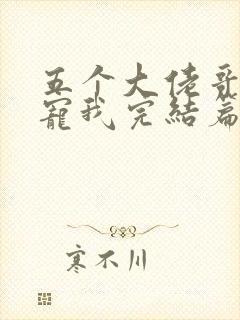 五个大佬哥
寵我完結篇
寒不川